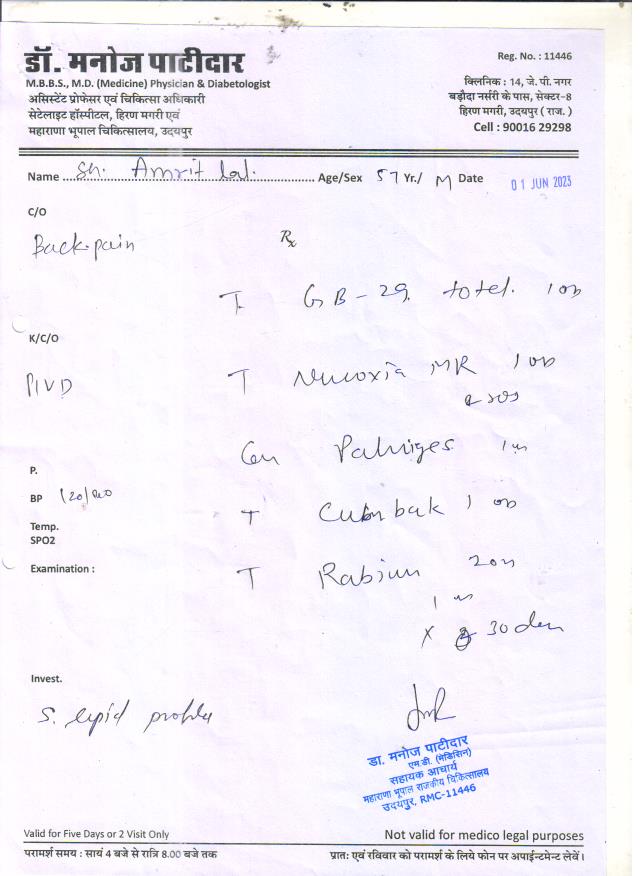 डॉ. मनोज पाटीदार
Reg. No. : 11446
M.B.B.S., M.D. (Medicine) Physician & Diabetologist
असिस्टेंट प्रोफेसर एवं चिकित्सा अधिकारी
सेटेलाइट हॉस्पीटल, हिरण मगरी एवं
महाराणा भूपाल चिकित्सालय, उदयपुर
क्लिनिक : 14, जे. पी. नगर
बड़ौदा नर्सरी के पास, सेक्टर-8
हिरण मगरी, उदयपुर ( राज. )
Cell : 90016 29298
Name Sh. Amrit lal. Age/Sex 57 Yr./ M Date 01 JUN 2023
C/O
Back pain
Rx
T GB-29 total. 1 OD
K/C/O
PIVD
T Nucoxia MR 1 OD
SOS
P.
BP 120/80
T 1 OD
Temp.
SPO2
Examination :
T Rabium 20
1
x 30
Invest.
S. lipid profile
डा. मनोज पाटीदार
एम.डी. (मेडिसिन)
सहायक आचार्य
महाराणा भूपाल राजकीय चिकित्सालय
उदयपुर, RMC-11446
Valid for Five Days or 2 Visit Only
Not valid for medico legal purposes
परामर्श समय : सायं 4 बजे से रात्रि 8.00 बजे तक
प्रातः एवं रविवार को परामर्श के लिये फोन पर अपाईन्टमेन्ट लेवें।